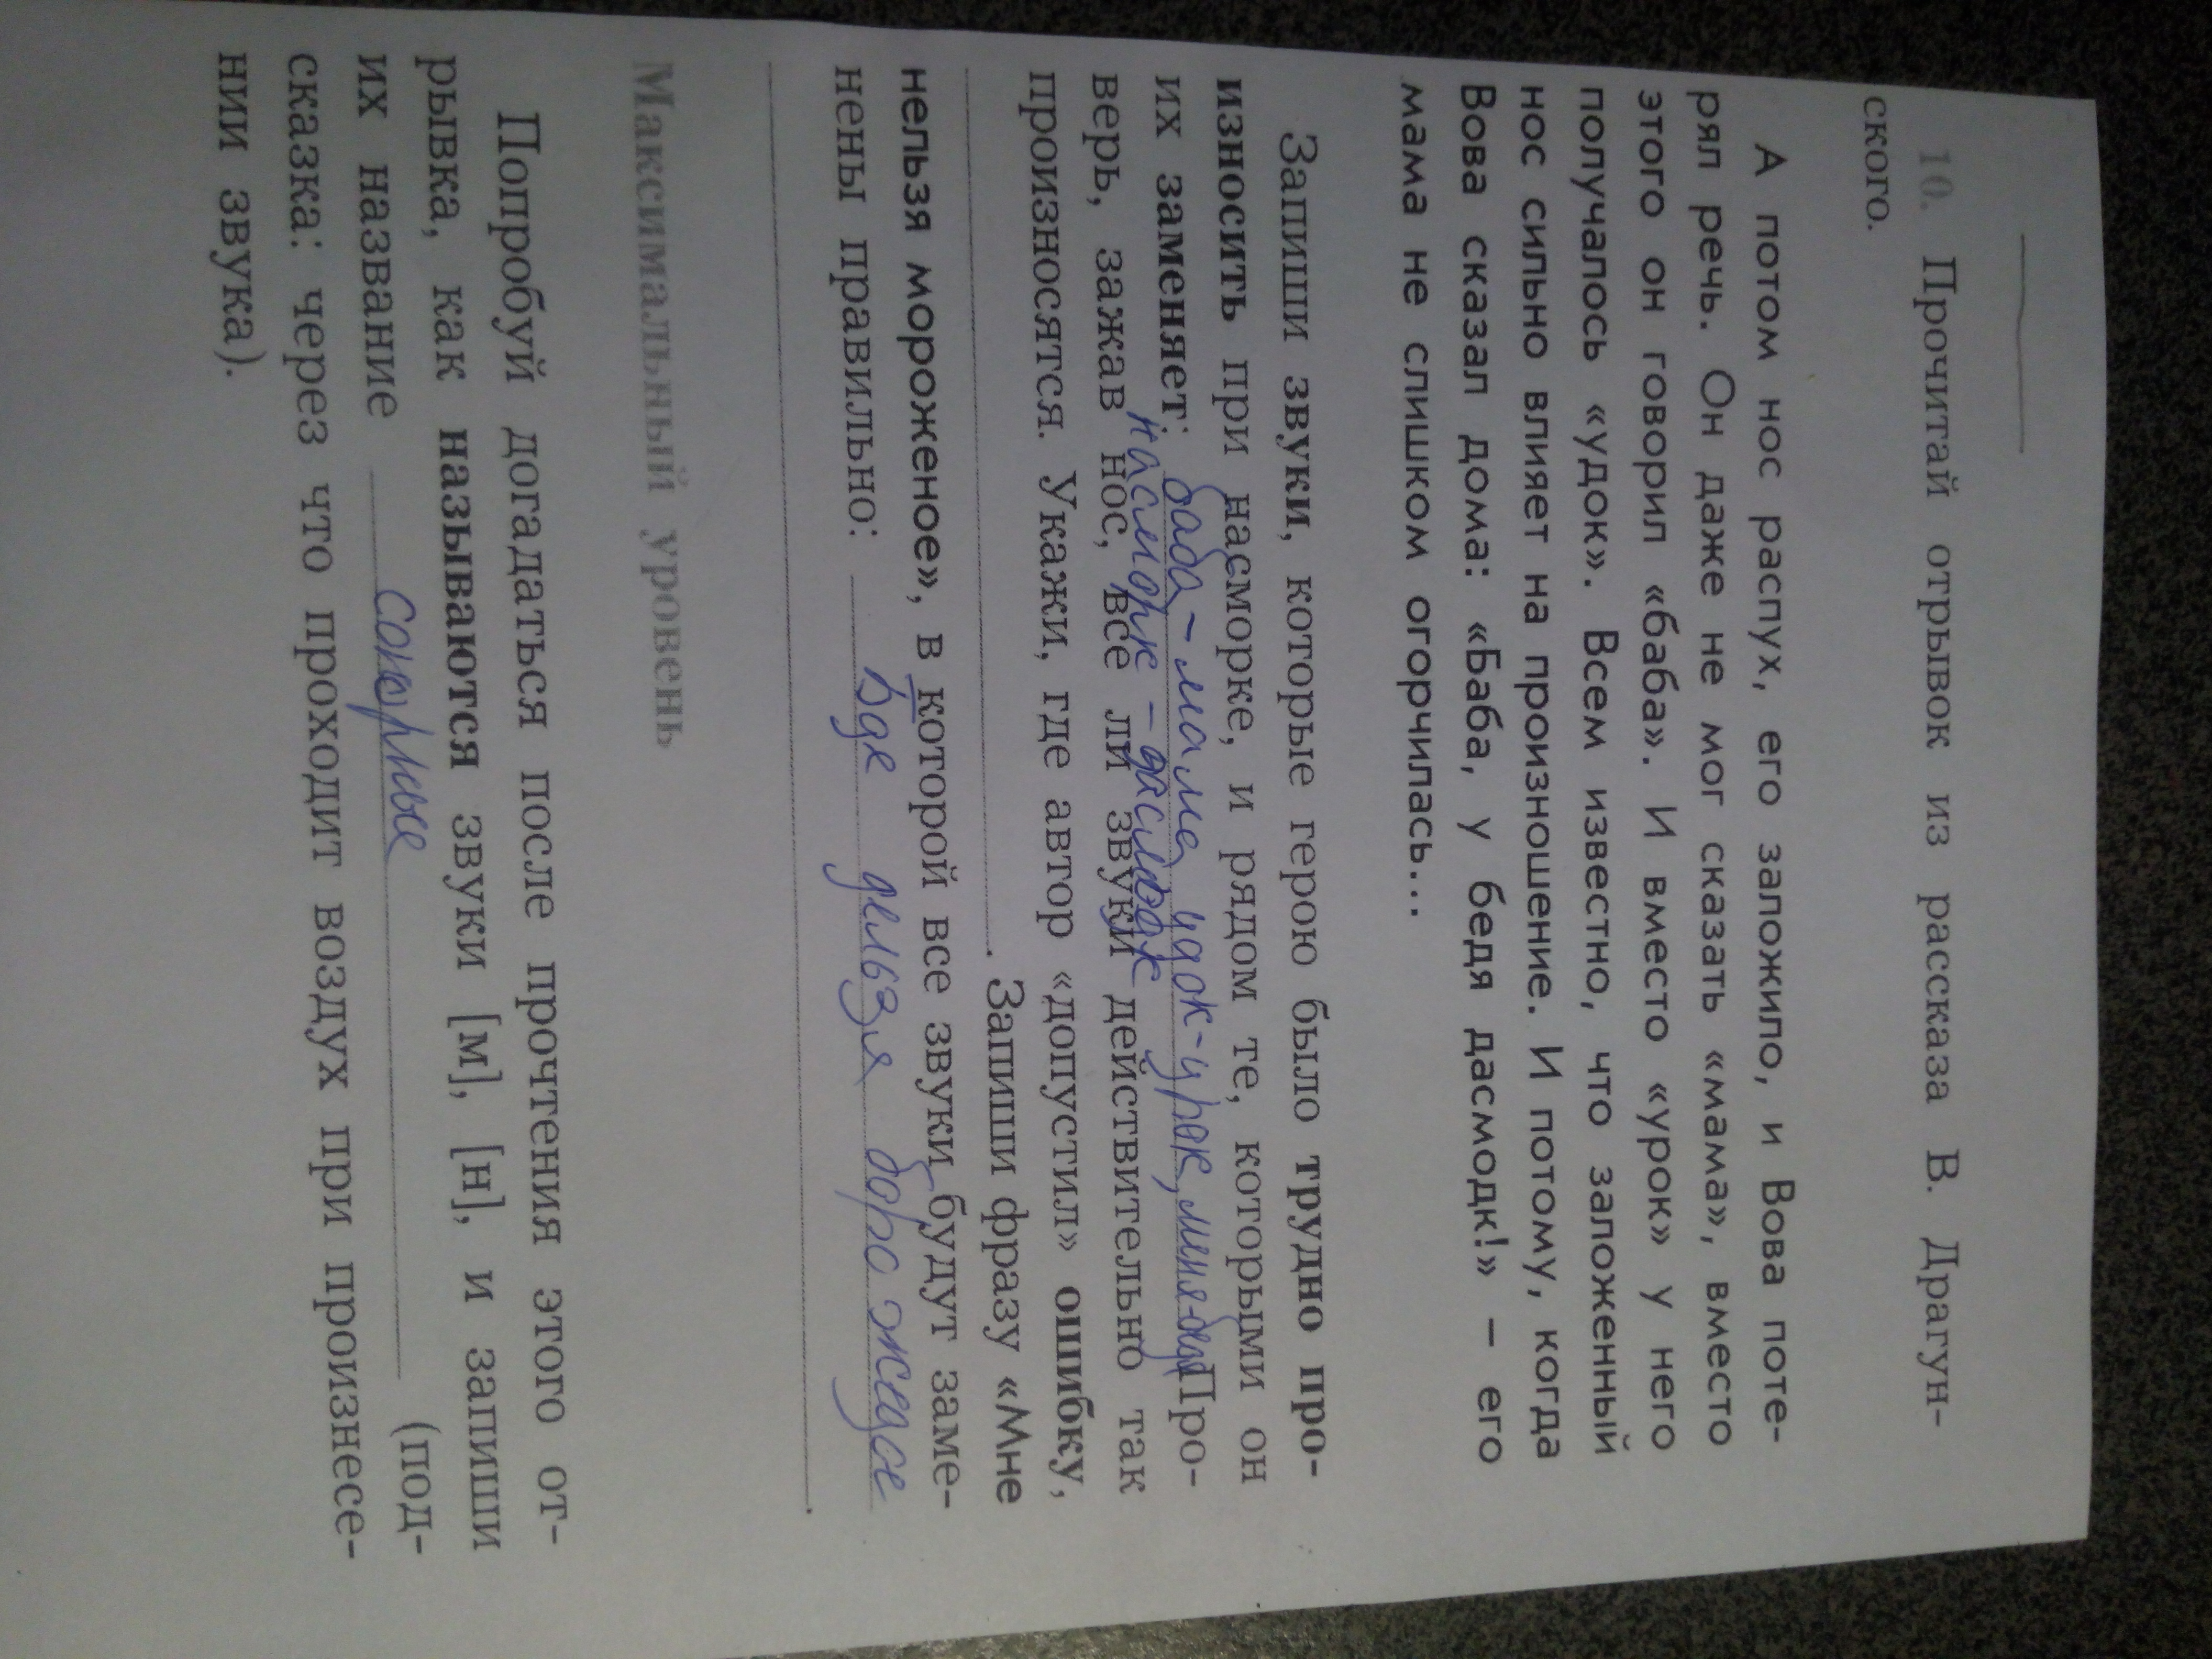 10. Прочитай отрывок из рассказа В. Драгун-
ского.
А потом нос распух, его заложило, и Вова поте-
рял речь. Он даже не мог сказать «мама», вместо
этого он говорил «баба». И вместо «урок» у него
получалось «удок». Всем известно, что заложенный
нос сильно влияет на произношение. И потому, когда
Вова сказал дома: «Баба, у бедя дасмодк!» – его
мама не слишком огорчилась...
Запиши звуки, которые герою было трудно про-
износить при насморке, и рядом те, которыми он
их заменяет: баба – мама удок - урок, меня - бедя Про-
насморк - дасмодк
верь, зажав нос, все ли звуки действительно так
произносятся. Укажи, где автор «допустил» ошибку,
. Запиши фразу «Мне
нельзя мороженое», в которой все звуки будут заме-
нены правильно: Бде дельзя
.
Максимальный уровень
Попробуй догадаться после прочтения этого от-
рывка, как называются звуки [м], [н], и запиши
их название сонорные (под-
сказка: через что проходит воздух при произнесе-
нии звука).